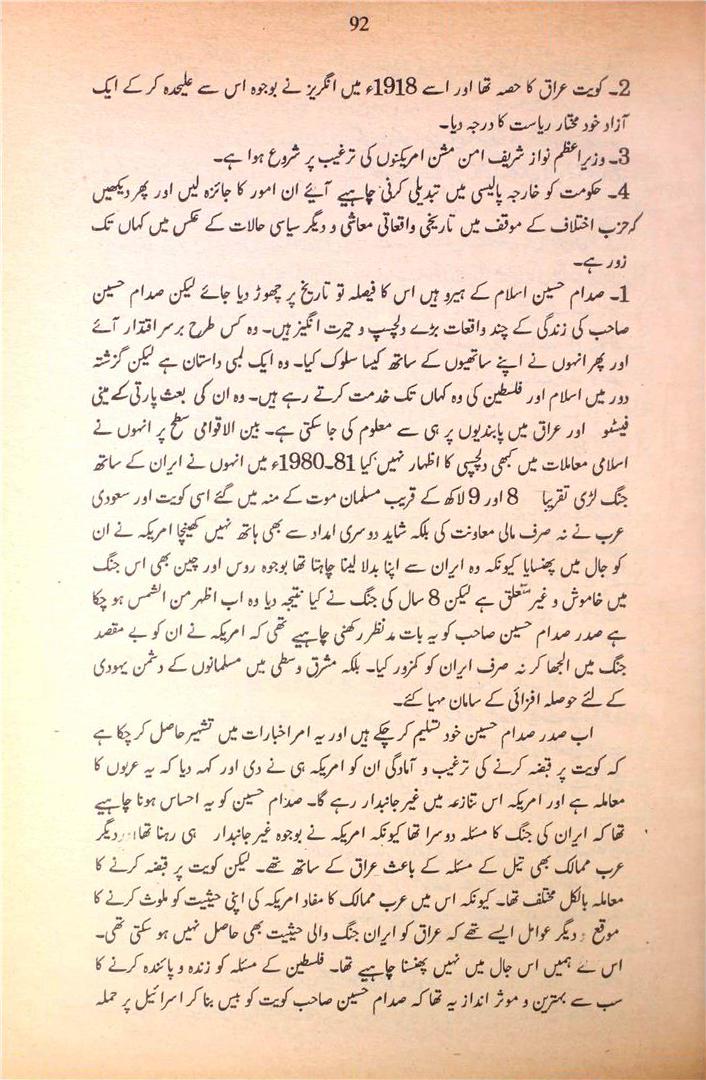 92
2۔ کویت عراق کا حصہ تھا اور اسے 1918ء میں انگریز نے بوجوہ اس سے علیحدہ کر کے ایک
آزاد خود مختار ریاست کا درجہ دیا۔
3۔ وزیراعظم نواز شریف امن مشن امریکنوں کی ترغیب پر شروع ہوا ہے۔
4۔ حکومت کو خارجہ پالیسی میں تبدیلی کرنی چاہیے آئیے ان امور کا جائزہ لیں اور پھر دیکھیں
کہ حزب اختلاف کے موقف میں تاریخی واقعاتی معاشی و دیگر سیاسی حالات کے عکس میں کہاں تک
زور ہے۔
1۔ صدام حسین اسلام کے ہیرو ہیں اس کا فیصلہ تو تاریخ پر چھوڑ دیا جائے لیکن صدام حسین
صاحب کی زندگی کے چند واقعات بڑے دلچسپ و حیرت انگیز ہیں۔ وہ کس طرح برسر اقتدار آئے
اور پھر انہوں نے اپنے ساتھیوں کے ساتھ کیسا سلوک کیا۔ وہ ایک لمبی داستان ہے لیکن گزشتہ
دور میں اسلام اور فلسطین کی وہ کہاں تک خدمت کرتے رہے ہیں۔ وہ ان کی بعث پارٹی کے مینی
فیسٹو اور عراق میں پابندیوں پر ہی سے معلوم کی جا سکتی ہے۔ بین الاقوامی سطح پر انہوں نے
اسلامی معاملات میں کبھی دلچسپی کا اظہار نہیں کیا 81۔1980ء میں انہوں نے ایران کے ساتھ
جنگ لڑی تقریبا 8 اور 9 لاکھ کے قریب مسلمان موت کے منہ میں گئے اسی کویت اور سعودی
عرب نے نہ صرف مالی معاونت کی بلکہ شاید دوسری امداد سے بھی ہاتھ نہیں کھینچا امریکہ نے ان
کو جال میں پھنسایا کیونکہ وہ ایران سے اپنا بدلا لینا چاہتا تھا بوجوہ روس اور چین بھی اس جنگ
میں خاموش و غیر متعلق ہے لیکن 8 سال کی جنگ نے کیا نتیجہ دیا وہ اب اظہر من الشمس ہو چکا
ہے صدر صدام حسین صاحب کو یہ بات مدنظر رکھنی چاہیے تھی کہ امریکہ نے ان کو بے مقصد
جنگ میں الجھا کر نہ صرف ایران کو کمزور کیا۔ بلکہ مشرق وسطی میں مسلمانوں کے دشمن یہودی
کے لئے حوصلہ افزائی کے سامان مہیا کئے۔
اب صدر صدام حسین خود تسلیم کر چکے ہیں اور یہ امر اخبارات میں تشہیر حاصل کر چکا ہے
کہ کویت پر قبضہ کرنے کی ترغیب و آمادگی ان کو امریکہ ہی نے دی اور کہہ دیا کہ یہ عربوں کا
معاملہ ہے اور امریکہ اس تنازعہ میں غیر جانبدار رہے گا۔ صدام حسین کو یہ احساس ہونا چاہیے
تھا کہ ایران کی جنگ کا مسئلہ دوسرا تھا کیونکہ امریکہ نے بوجوہ غیر جانبدار ہی رہنا تھا دیگر
عرب ممالک بھی تیل کے مسئلہ کے باعث عراق کے ساتھ تھے۔ لیکن کویت پر قبضہ کرنے کا
معاملہ بالکل مختلف تھا۔ کیونکہ اس میں عرب ممالک کا مفاد امریکہ کی اپنی حیثیت کو ملوث کرنے کا
موقع دیگر عوامل ایسے تھے کہ عراق کو ایران جنگ والی حیثیت بھی حاصل نہیں ہو سکتی تھی۔
اس ہمیں اس جال میں نہیں پھنسنا چاہیے تھا۔ فلسطین کے مسئلہ کو زندہ و پائندہ کرنے کا
سب سے بہترین و موثر انداز یہ تھا کہ صدام حسین صاحب کویت کو بیس بنا کر اسرائیل پر حملہ